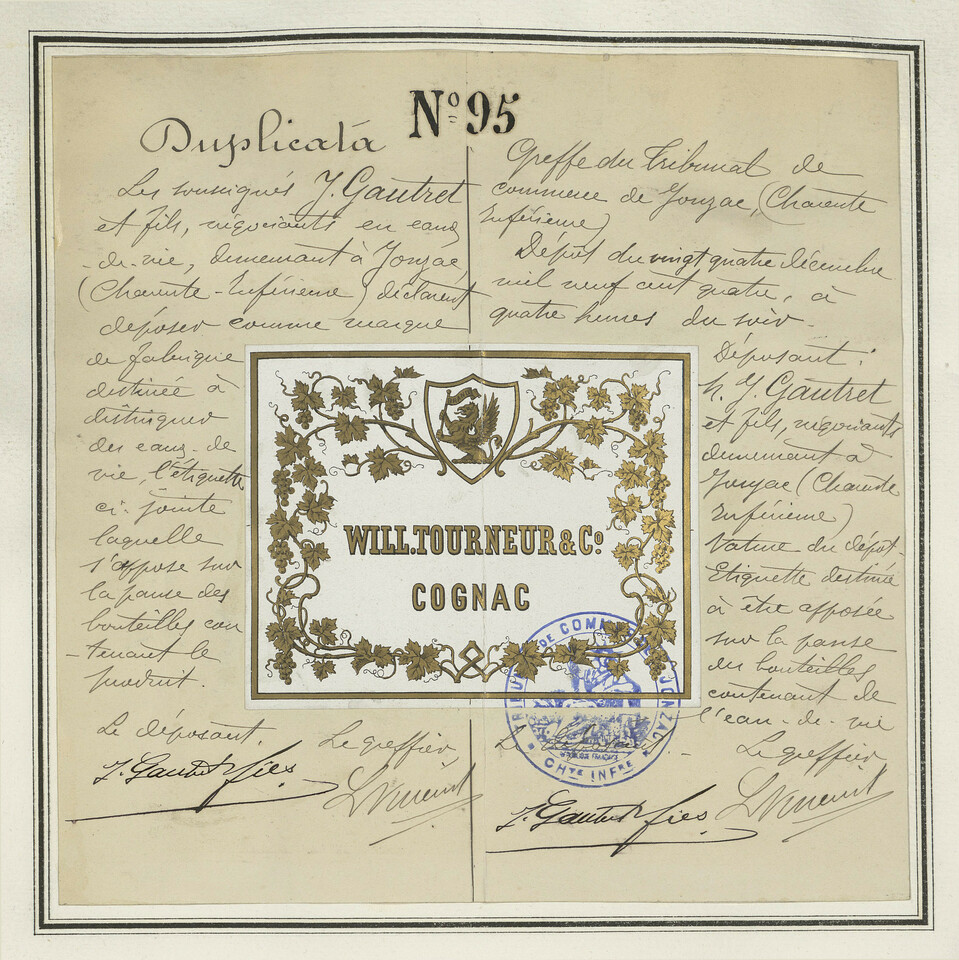 Nº 95
Duplicata
Les soussignés J. Gautret
et fils, négociants en eaux
-de-vie, demeurant à Jonzac,
(Charente-Inférieure) déclarent
déposer comme marque
de fabrique
destinée à
distinguer
des eaux-de
vie, l'étiquette
ci-jointe
laquelle
s'appose sur
la panse des
bouteilles con
-tenant le
produit.
Le déposant.
Le greffier
J. Gautret fils
LVincent
Greffe du Tribunal de
commerce de Jonzac, (Charente
Inférieure)
Dépôt du vingt quatre décembre
mil neuf cent quatre, à
quatre heures du soir.
Déposant:
J. Gautret
et fils, négociants
demeurant à
Jonzac (Charente
Inférieure)
Nature du dépôt-
Etiquette destinée
à être apposée
sur la panse
des bouteilles
contenant de
l'eau-de-vie
Le déposant.
Le greffier
J. Gautret fils
LVincent
WILL.TOURNEUR & Cº
COGNAC
DE COMMERCE DE JONZAC
CHTE INFRE